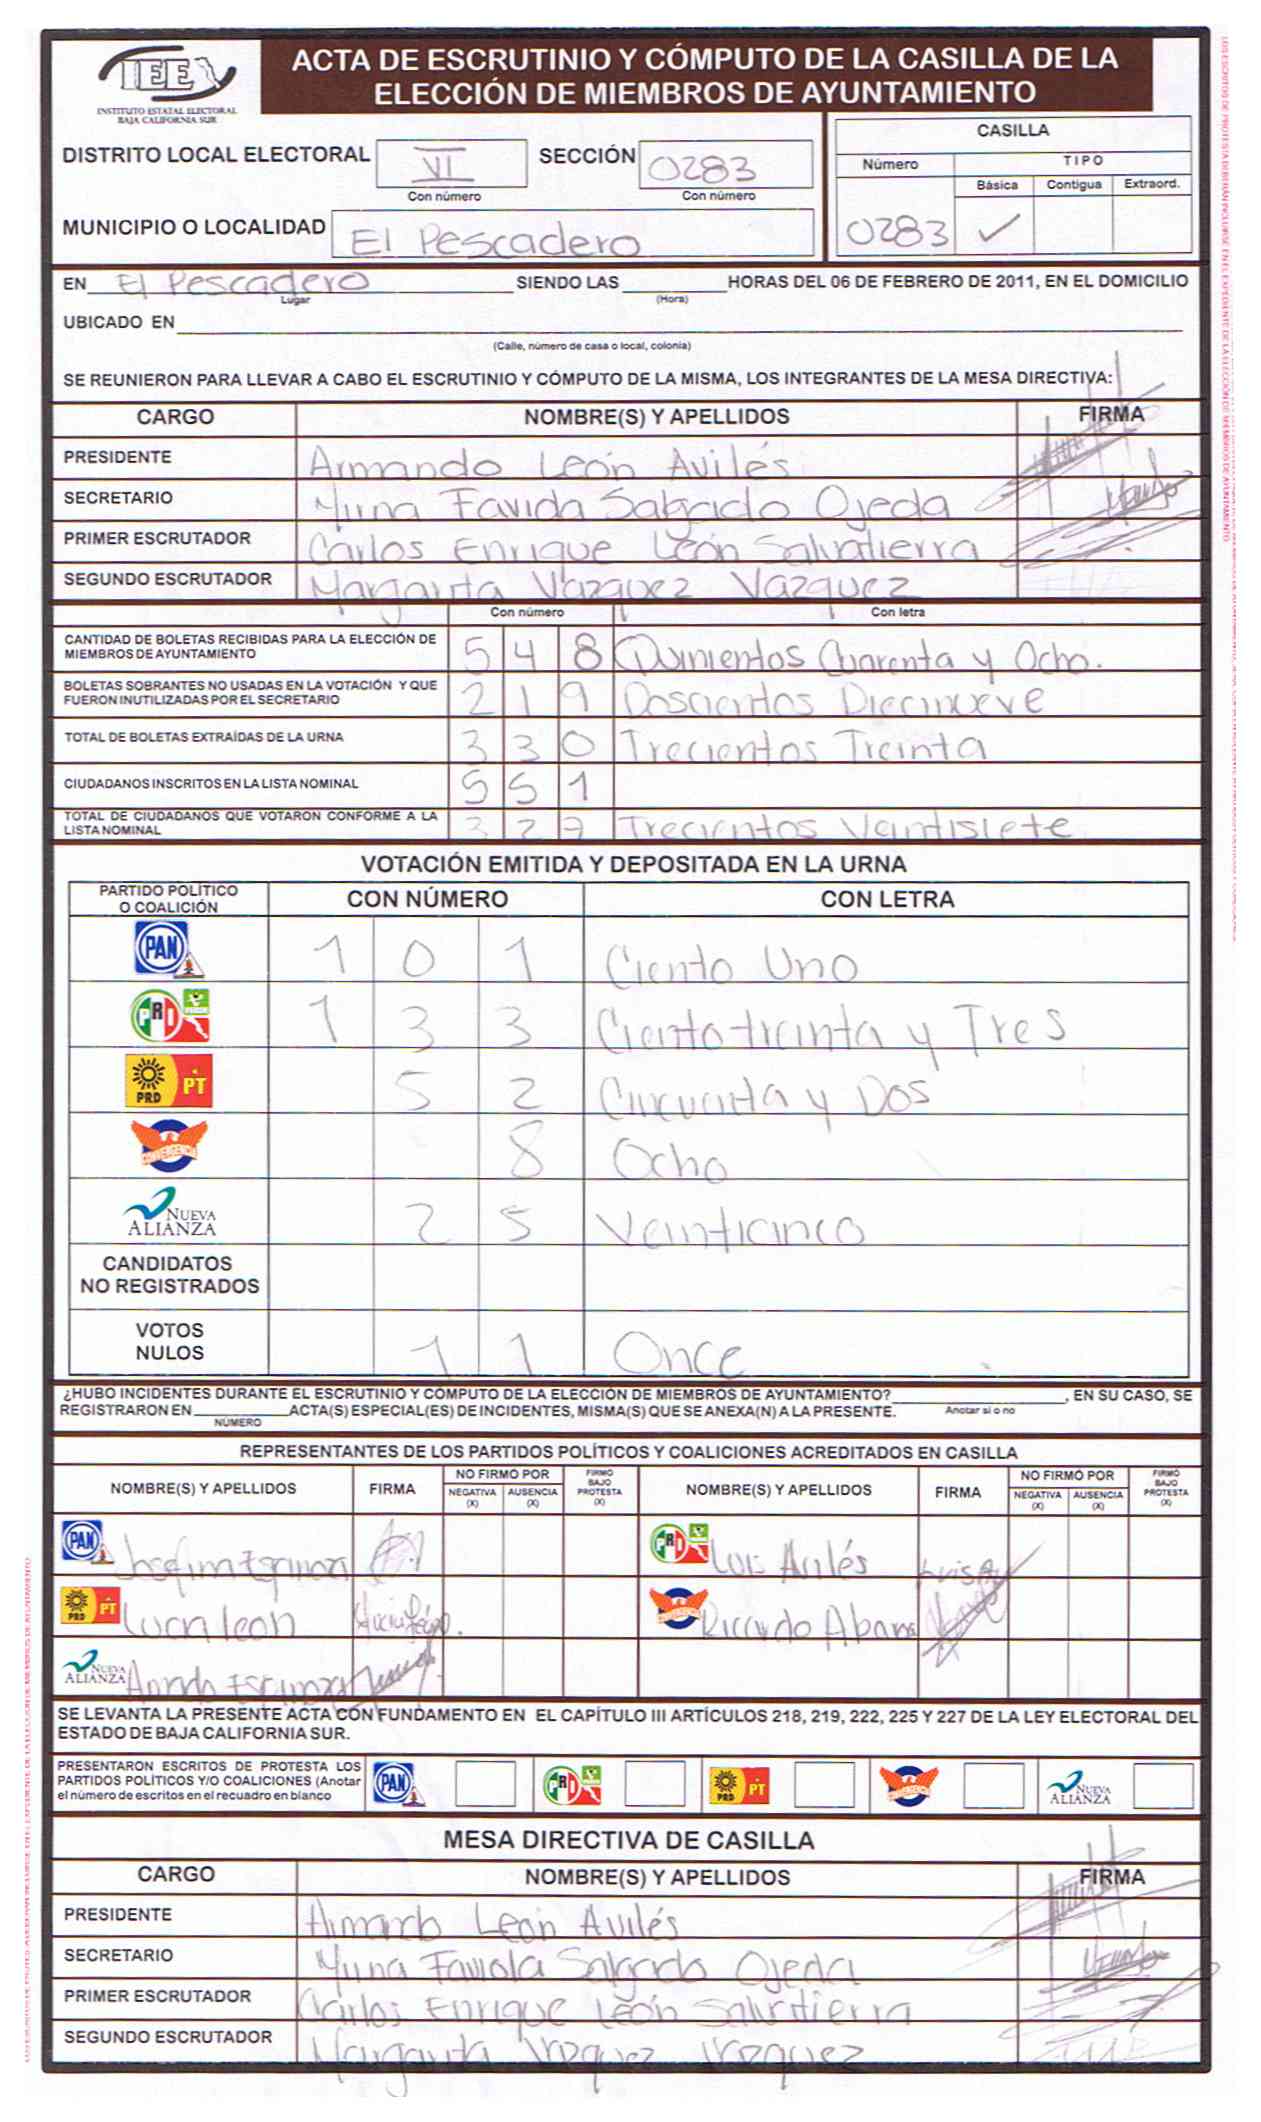 IEE
INSTITUTO ESTATAL ELECTORAL
BAJA CALIFORNIA SUR
ACTA DE ESCRUTINIO Y CÓMPUTO DE LA CASILLA DE LA
ELECCIÓN DE MIEMBROS DE AYUNTAMIENTO
DISTRITO LOCAL ELECTORAL VI SECCIÓN 0283
Con número Con número
MUNICIPIO O LOCALIDAD El Pescadero
CASILLA
Número TIPO
Básica Contigua Extraord.
0283 ✓
EN El Pescadero SIENDO LAS HORAS DEL 06 DE FEBRERO DE 2011, EN EL DOMICILIO
Lugar (Hora)
UBICADO EN
(Calle, número de casa o local, colonia)
SE REUNIERON PARA LLEVAR A CABO EL ESCRUTINIO Y CÓMPUTO DE LA MISMA, LOS INTEGRANTES DE LA MESA DIRECTIVA:
CARGO NOMBRE(S) Y APELLIDOS FIRMA
PRESIDENTE Armando León Avilés
SECRETARIO Favida Salgado Ojeda
PRIMER ESCRUTADOR Carlos Enrique León Salvatierra
SEGUNDO ESCRUTADOR Margarita Vazquez Vazquez
Con número Con letra
CANTIDAD DE BOLETAS RECIBIDAS PARA LA ELECCIÓN DE
MIEMBROS DE AYUNTAMIENTO 5 4 8 Quinientos Cuarenta y Ocho.
BOLETAS SOBRANTES NO USADAS EN LA VOTACIÓN Y QUE
FUERON INUTILIZADAS POR EL SECRETARIO 2 1 9 Doscientos Diecinueve
TOTAL DE BOLETAS EXTRAÍDAS DE LA URNA 3 3 0 Trecientos Treinta
CIUDADANOS INSCRITOS EN LA LISTA NOMINAL 5 5 1
TOTAL DE CIUDADANOS QUE VOTARON CONFORME A LA
LISTA NOMINAL 3 2 7 Trecientos Veintisiete
VOTACIÓN EMITIDA Y DEPOSITADA EN LA URNA
PARTIDO POLÍTICO
O COALICIÓN CON NÚMERO CON LETRA
PAN 1 0 1 Ciento Uno
PRI 1 3 3 Ciento treinta y Tres
PRD PT 5 2 Cincuenta y Dos
CONVERGENCIA 8 Ocho
NUEVA ALIANZA 2 5 Veinticinco
CANDIDATOS
NO REGISTRADOS
VOTOS
NULOS 1 1 Once
¿HUBO INCIDENTES DURANTE EL ESCRUTINIO Y CÓMPUTO DE LA ELECCIÓN DE MIEMBROS DE AYUNTAMIENTO? , EN SU CASO, SE
REGISTRARON EN ACTA(S) ESPECIAL(ES) DE INCIDENTES, MISMA(S) QUE SE ANEXA(N) A LA PRESENTE. Anotar si o no
NÚMERO
REPRESENTANTES DE LOS PARTIDOS POLÍTICOS Y COALICIONES ACREDITADOS EN CASILLA
NOMBRE(S) Y APELLIDOS FIRMA NO FIRMÓ POR NEGATIVA (X) AUSENCIA (X) FIRMÓ BAJO PROTESTA (X) NOMBRE(S) Y APELLIDOS FIRMA NO FIRMÓ POR NEGATIVA (X) AUSENCIA (X) FIRMÓ BAJO PROTESTA (X)
PAN Josefina Espinoza PRI Luis Avilés
PRD PT Lucia León CONVERGENCIA Ricardo
NUEVA ALIANZA Espinoza
SE LEVANTA LA PRESENTE ACTA CON FUNDAMENTO EN EL CAPÍTULO III ARTÍCULOS 218, 219, 222, 225 Y 227 DE LA LEY ELECTORAL DEL
ESTADO DE BAJA CALIFORNIA SUR.
PRESENTARON ESCRITOS DE PROTESTA LOS
PARTIDOS POLÍTICOS Y/O COALICIONES (Anotar
el número de escritos en el recuadro en blanco
PAN PRI PRD PT CONVERGENCIA NUEVA ALIANZA
MESA DIRECTIVA DE CASILLA
CARGO NOMBRE(S) Y APELLIDOS FIRMA
PRESIDENTE Armando León Avilés
SECRETARIO Faviola Salgado Ojeda
PRIMER ESCRUTADOR Carlos Enrique León Salvatierra
SEGUNDO ESCRUTADOR Margarita Vazquez Vazquez